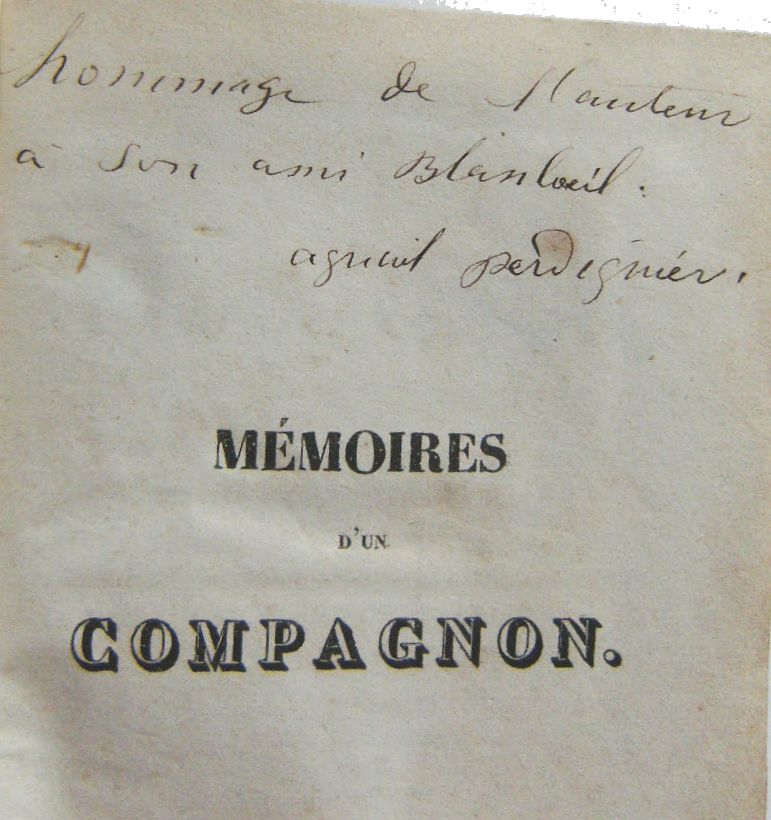 hommage de l'auteur
à son ami Blanloeil.
agricol perdiguier.
MÉMOIRES
D'UN
COMPAGNON.